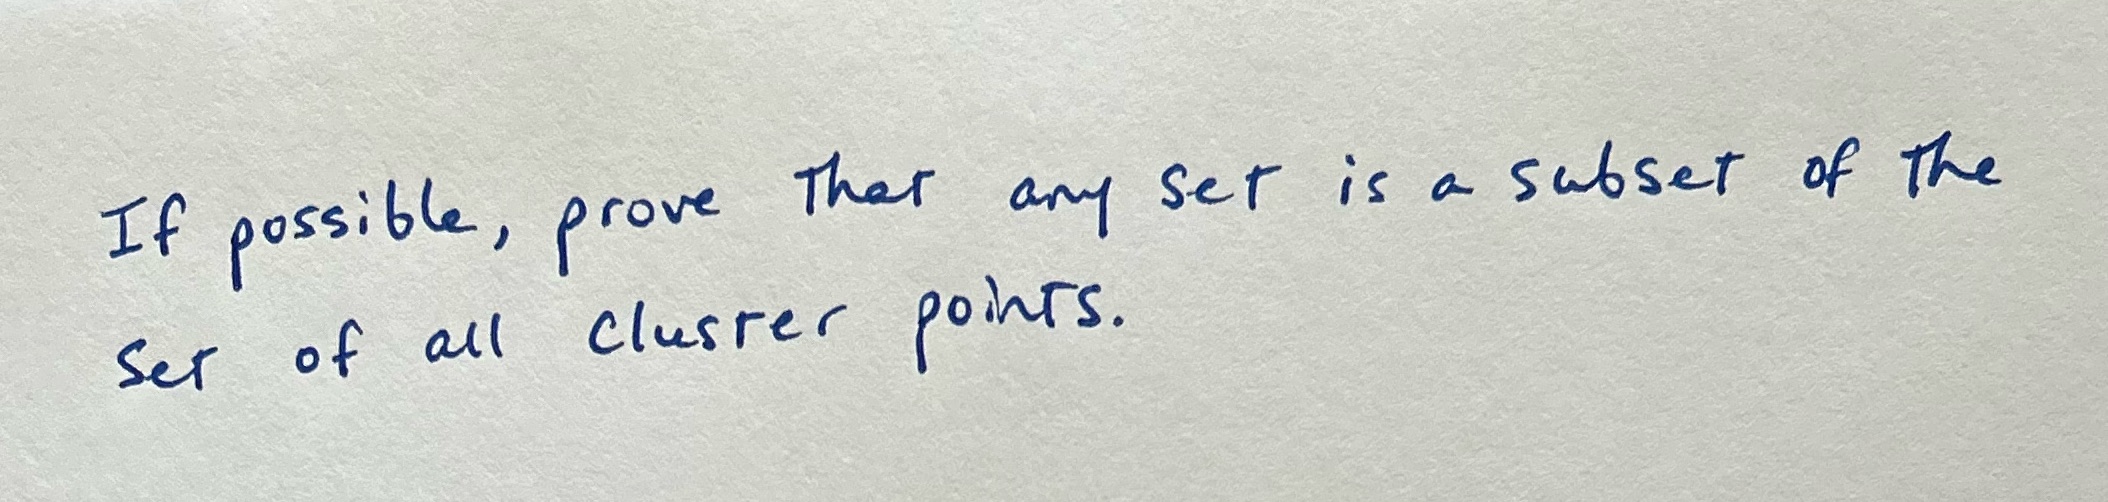 If possible, prove that any set is a subset of the
set of all cluster points.